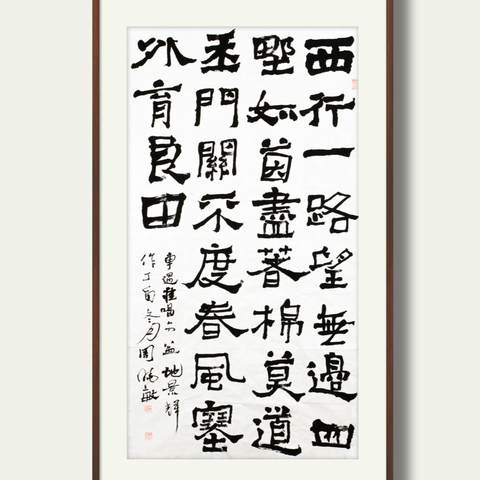 西行一路望無邊四
野如茵盡著棉莫道
玉門關不度春風塞
外育良田
車過準噶尔盆地景輝
作丁酉冬月周敏